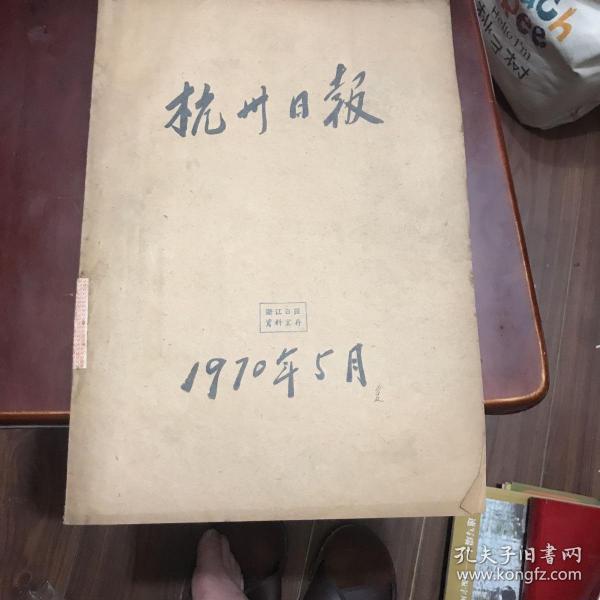 杭州日报
浙江日报
资料室存
1970年5月
Hello I'm
孔夫子旧书网
www.kongfz.com